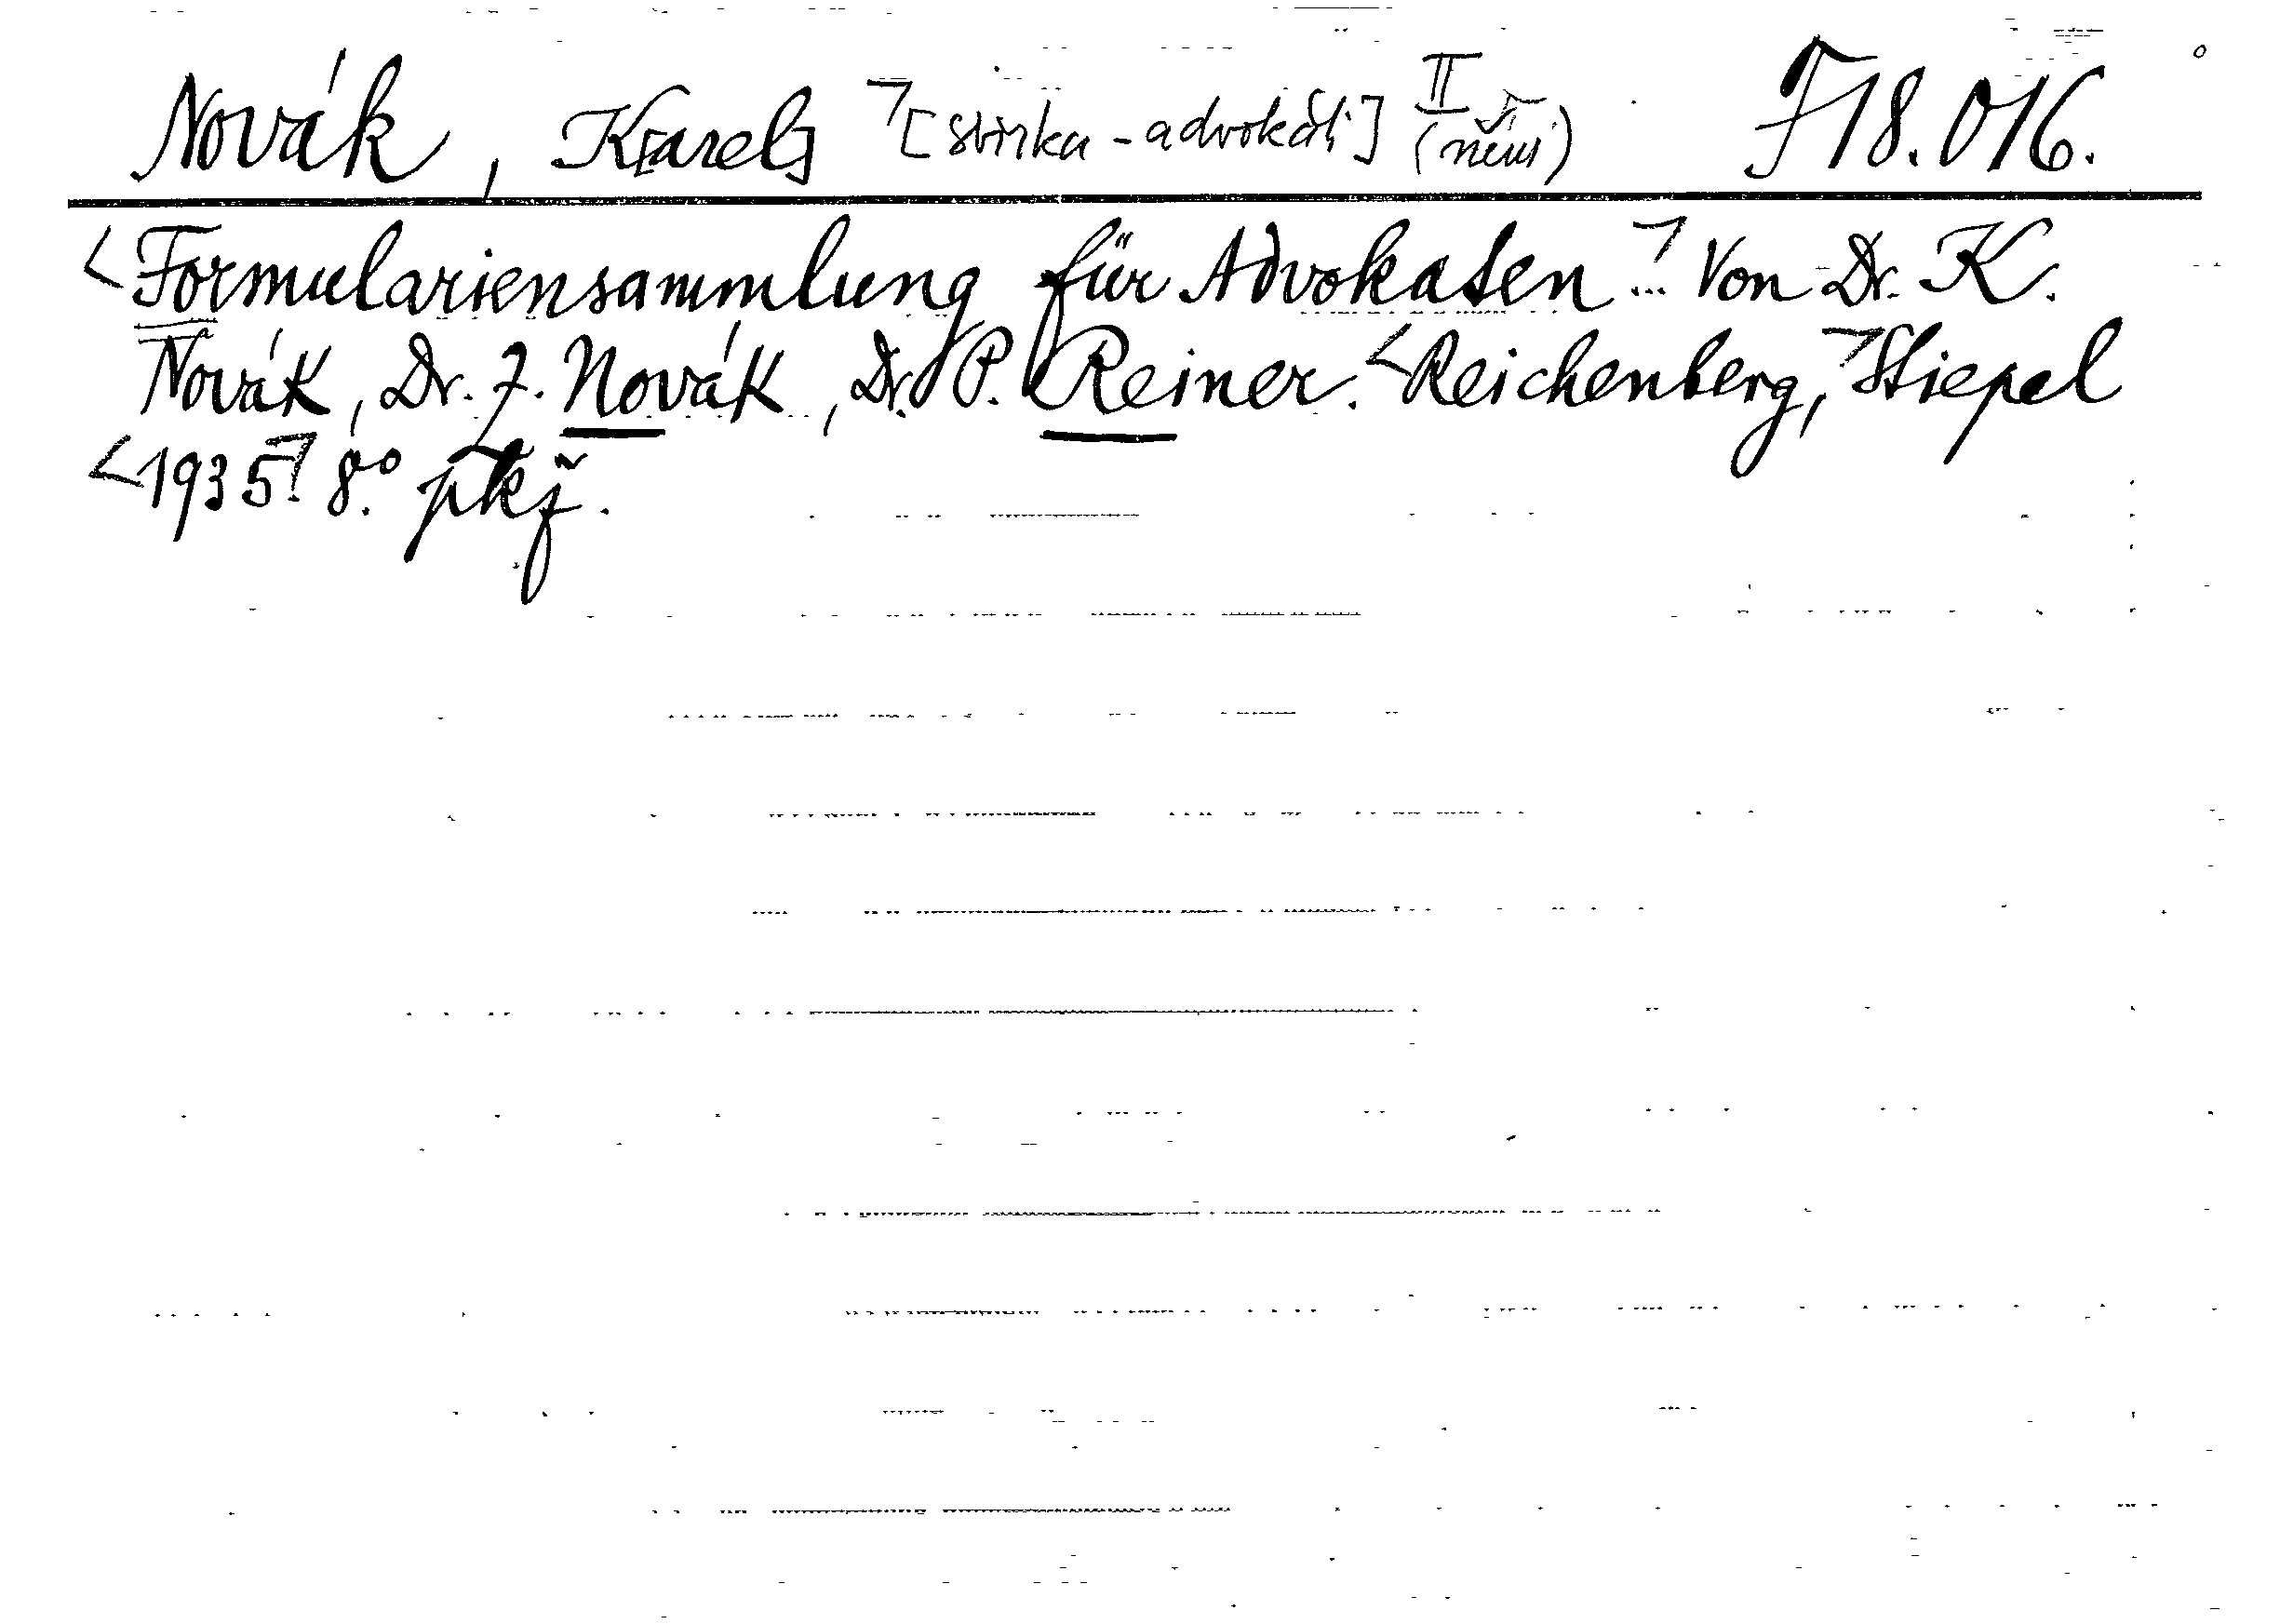 Novák, K[arel] [sbírka - advokáti] II (něm) F 18.016.
<Formulariensammlung für Advokaten... Von Dr. K.
Novák, Dr. J. Novák, Dr. P. Reiner. <Reichenberg, Stiepel
<1935. 8.°